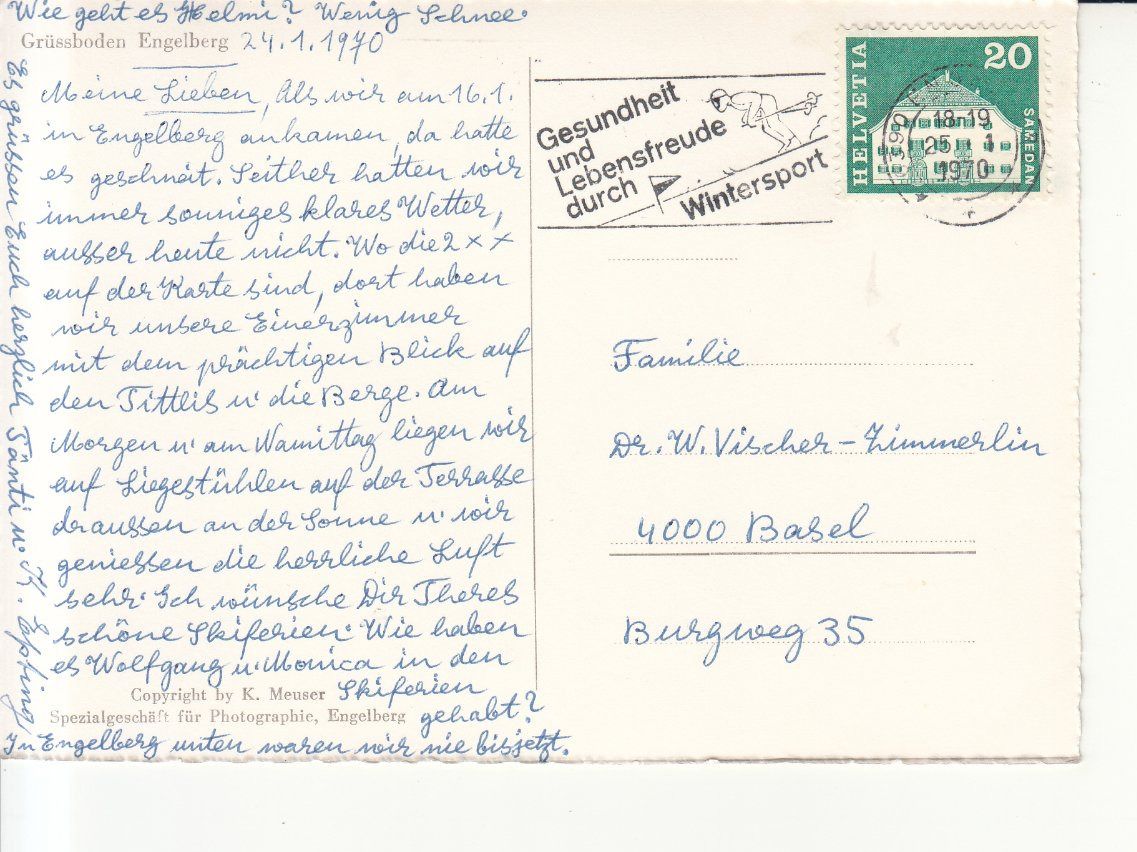 Wie geht es Helmi? Wenig Schnee.
Grüssboden Engelberg 24.1.1970
Meine Lieben, Als wir am 16.1.
in Engelberg ankamen, da hatte
es geschneit. Seither hatten wir
immer sonniges klares Wetter,
ausser heute nicht. Wo die 2 x x
auf der Karte sind, dort haben
wir unsere Einerzimmer
mit dem prächtigen Blick auf
den Tittlis u' die Berge. Am
Morgen u' am Namittag liegen wir
auf Liegestühlen auf der Terrasse
draussen an der Sonne u' wir
geniessen die herrliche Luft
sehr. Ich wünsche Dir Theres
schöne Skiferien. Wie haben
es Wolfgang u' Monica in den
Skiferien
gehabt?
Copyright by K. Meuser
Spezialgeschäft für Photographie, Engelberg
In Engelberg unten waren wir nie bis jetzt.
Es grüssen Euch herzlich Tänti u. K. Epting
Gesundheit
und
Lebensfreude
durch
Wintersport
HELVETIA
20
SAMEDAN
6390
18-19
25.-1
1970
Familie
Dr. W. Vischer-Zimmerlin
4000 Basel
Burgweg 35